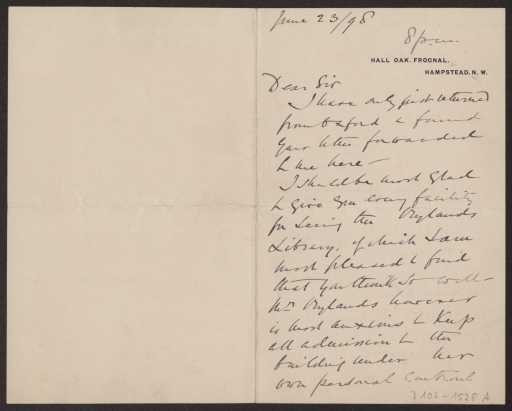 June 23/98
8 p.m.
HALL OAK. FROGNAL,
HAMPSTEAD. N. W.
Dear Sir
I have only just returned
from Oxford & found
your letter forwarded
to me here —
I should be most glad
to give you every facility
for seeing the Rylands
Library, of which I am
most pleased to find
that you think so well —
Mrs Rylands however
is most anxious to keep
all admission to the
building under her
own personal control